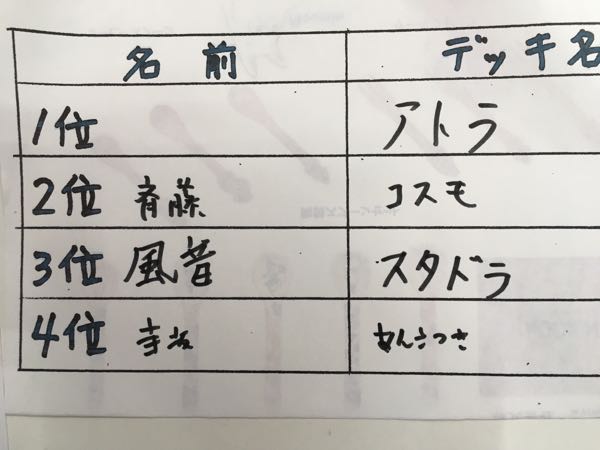 名前 デッキ名
1位 アトラ
2位 斉藤 コスモ
3位 風音 スタドラ
4位